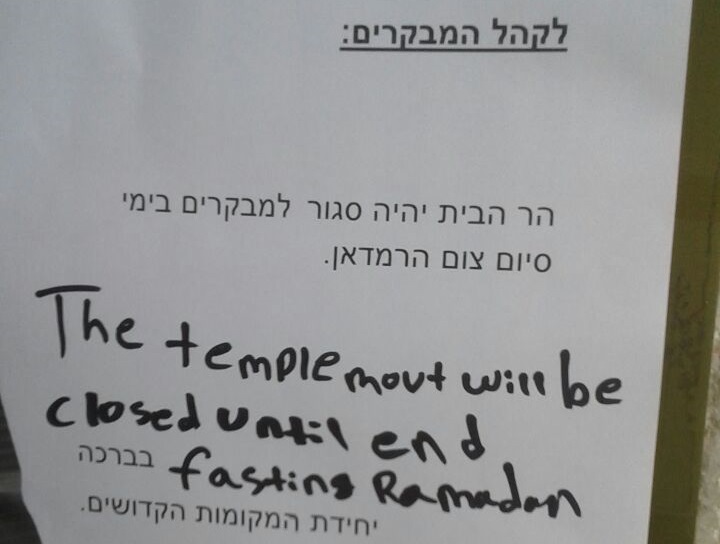 לקהל המבקרים:
הר הבית יהיה סגור למבקרים בימי
סיום צום הרמדאן.
The templemout will be
closed until end
fasting Ramadan
בברכה
יחידת המקומות הקדושים.